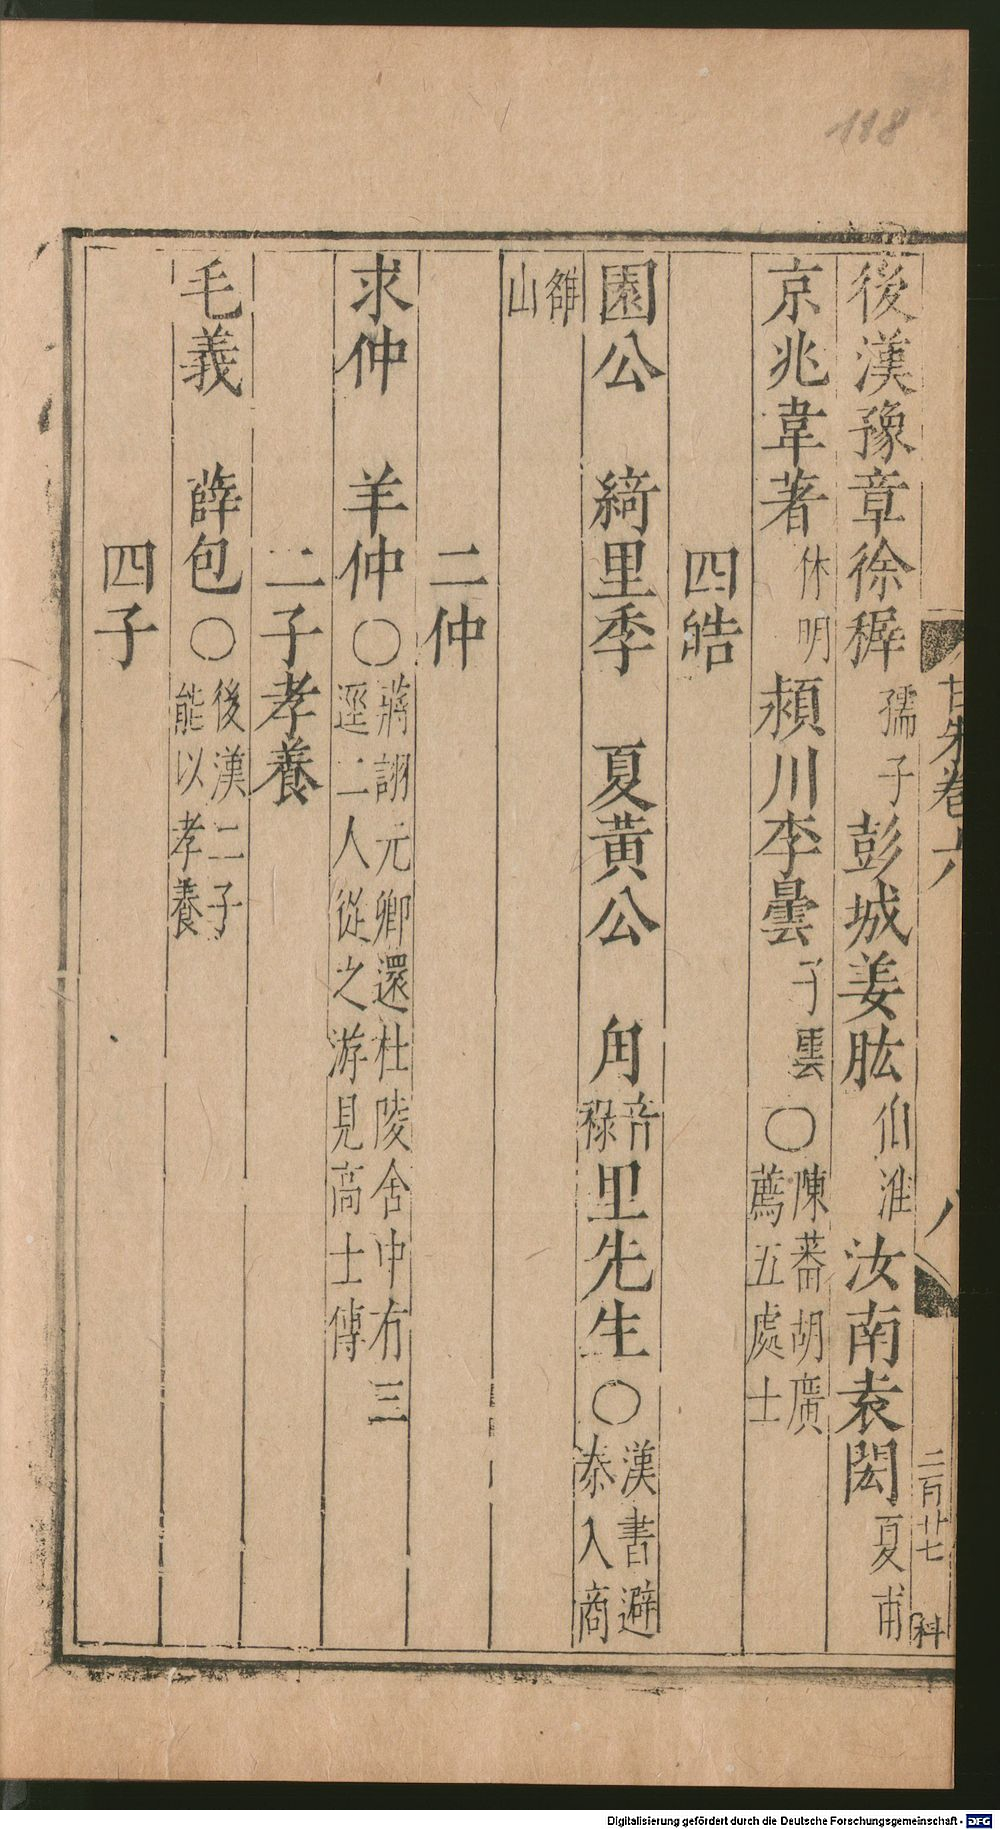 118
甘朱卷六
八
二百廿七
科
後漢豫章徐穉孺子彭城姜肱伯淮汝南袁閎夏甫
京兆韋著休明潁川李曇子雲○陳蕃胡廣薦五處士
四皓
園公 綺里季 夏黃公 甪音祿里先生○漢書避秦入商
雒山
二仲
求仲 羊仲○蔣詡元卿還杜陵舍中有三逕二人從之游見高士傳
二子孝養
毛義 薛包○後漢二子能以孝養
四子
Digitalisierung gefördert durch die Deutsche Forschungsgemeinschaft - DFG